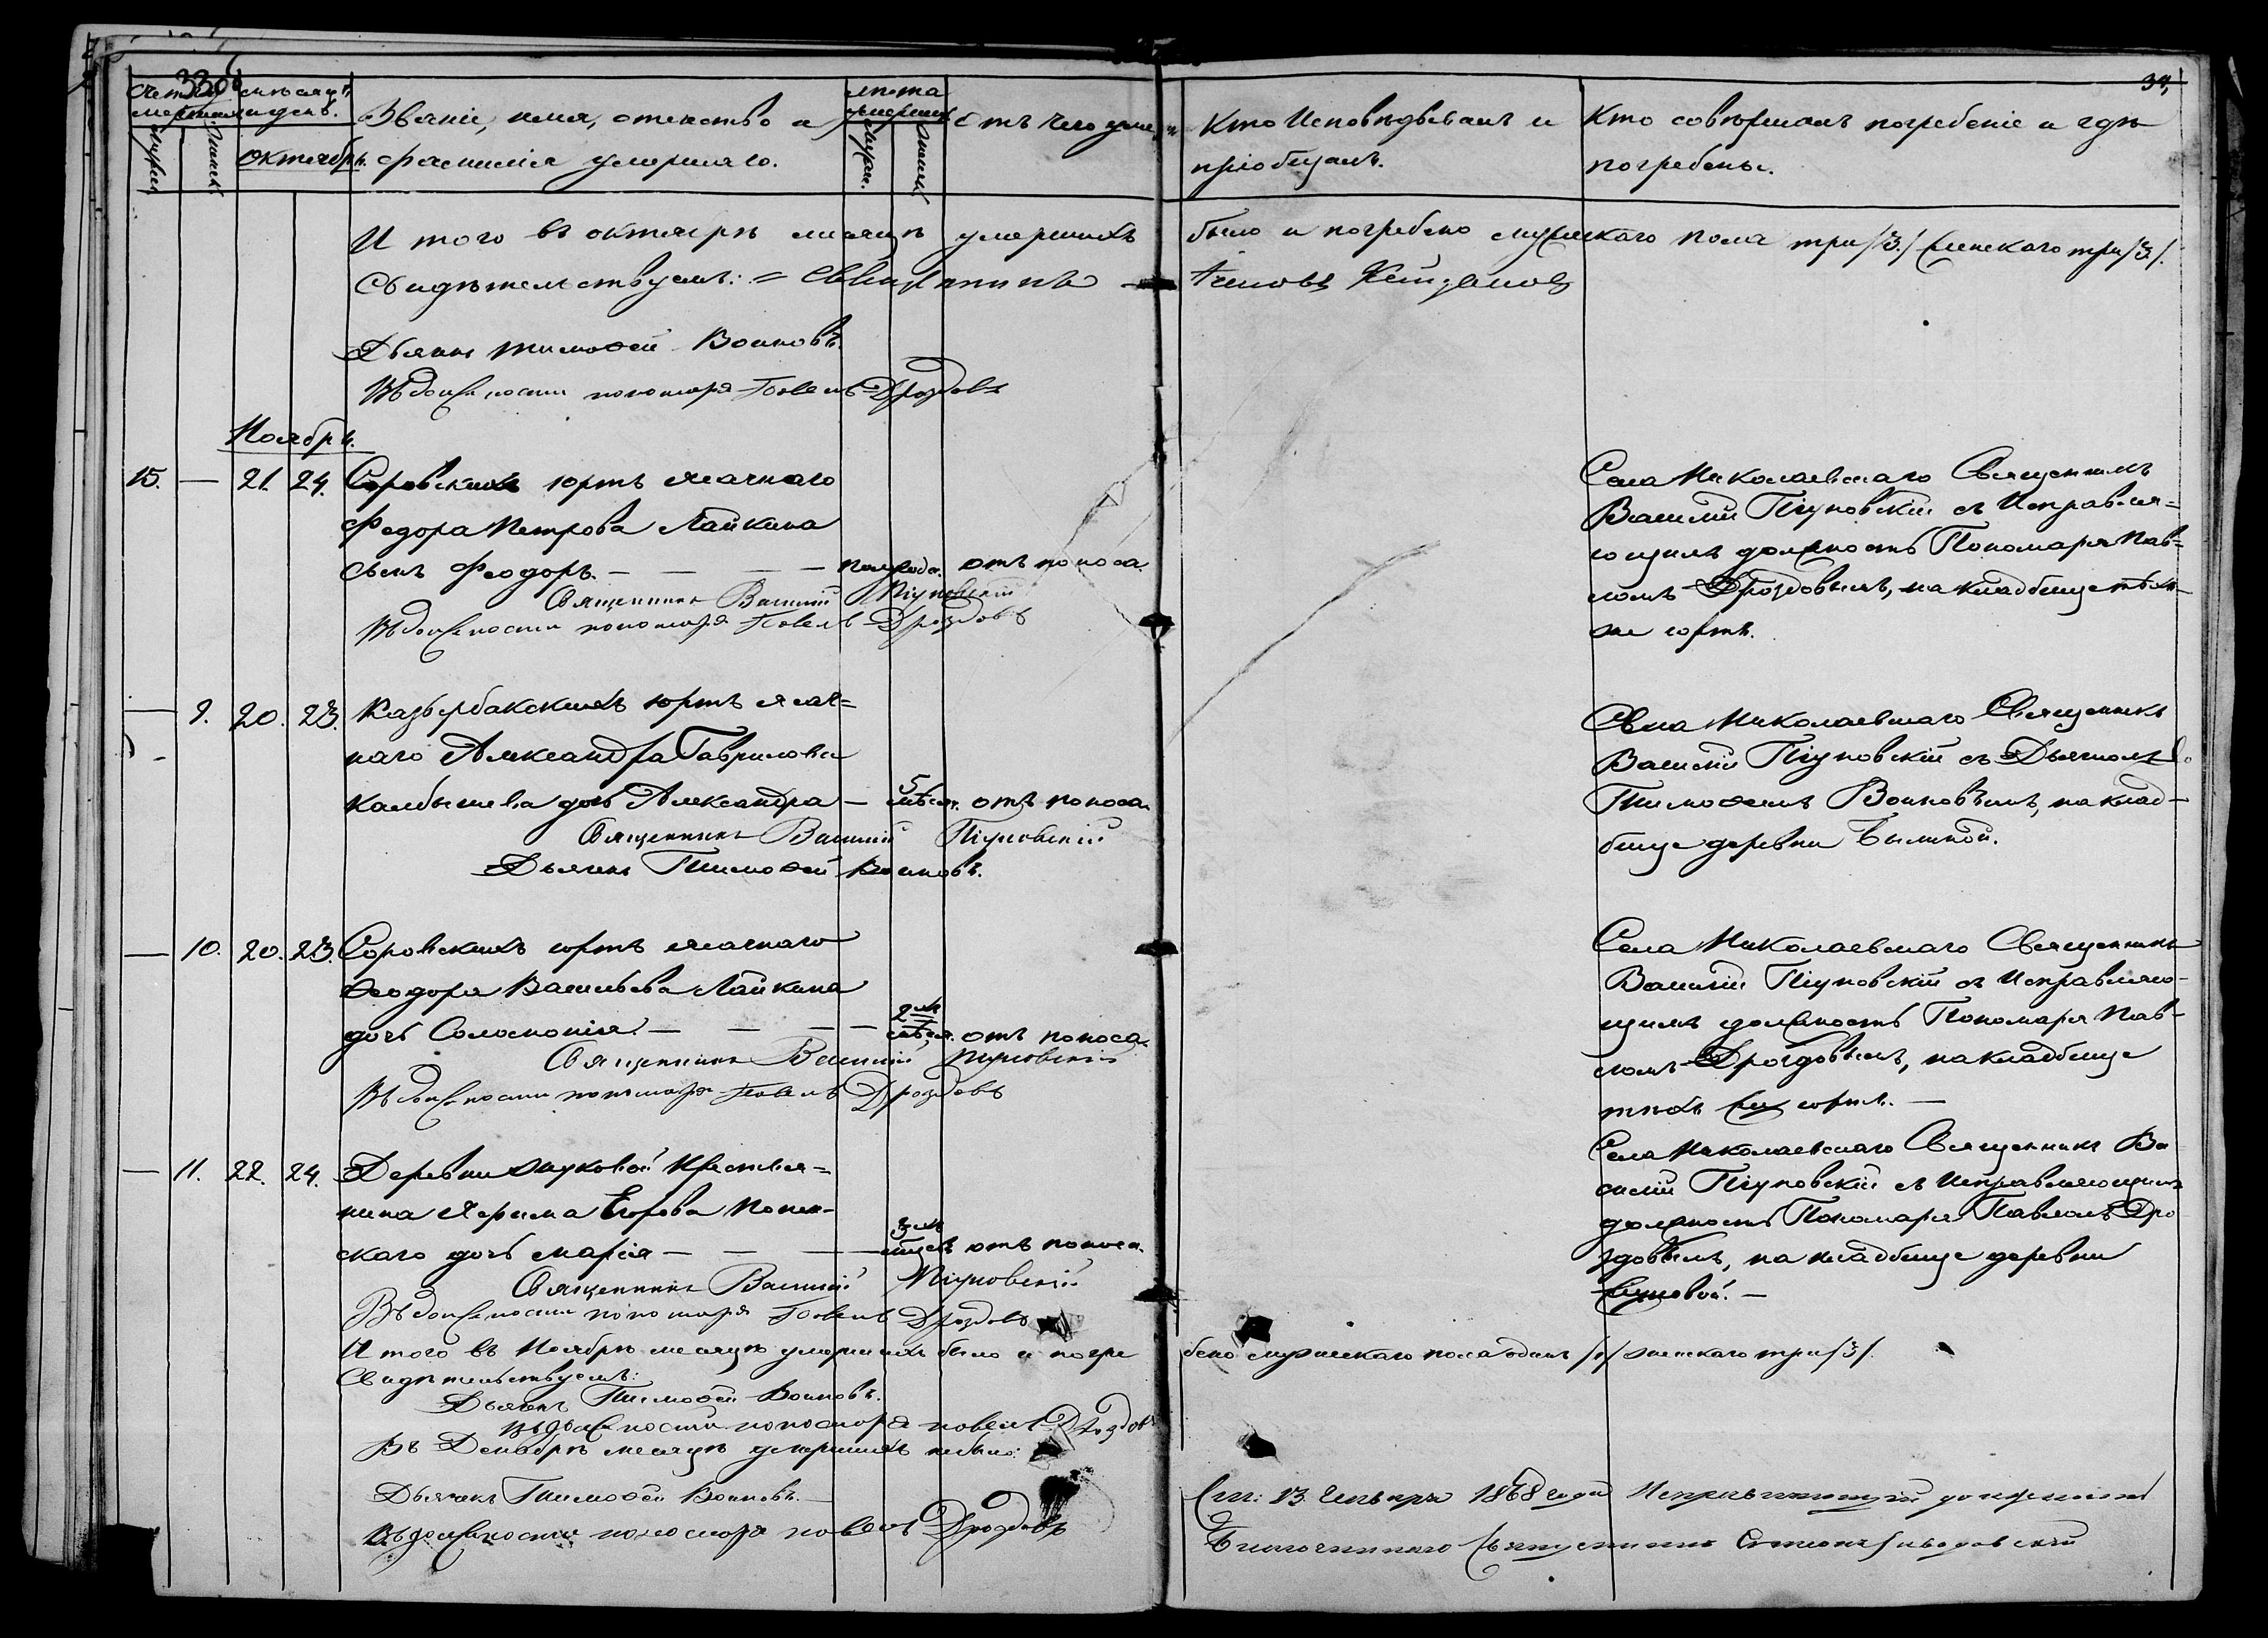 330
34,
Счетъ умершихъ
Мѣсяцъ и день.
Октябрь.
Званіе, имя, отчество и
фамилія умершаго.
лѣта умершихъ
отъ чего умеръ
Кто Исповѣдывалъ и
пріобщалъ.
Кто совершалъ погребеніе и гдѣ
погребены.
И того въ октябрѣ мѣсяцѣ умершихъ было и погребено мужескаго пола три /3./ женскаго три /3/.
Свидѣтельствуемъ: =
Дьячекъ Тимоѳей Воиновъ.
Въ должности пономаря Павелъ Дроздовъ
Ноябрь.
15. — 21. 24. Соровскихъ юртъ ясачнаго
Федора Петрова Лайкина
сынъ Феодоръ. — — — — полугода. отъ поноса.
Священникъ Василий Піуновскій
Въ должности пономаря Павелъ Дроздовъ
Села Николаевскаго Священникъ
Василій Піуновскій съ Исправля=
ющимъ должность Пономаря Пав=
ломъ Дроздовымъ, на кладбище тѣхъ
же юртъ.
— 9. 20. 23. Казырбакскихъ юртъ ясач=
наго Александра Гаврилова
Калбышева дочь Александра — 5 мѣсяц. отъ поноса
Священникъ Василий Піуновскій
Дьячекъ Тимоѳей Воиновъ.
Села Николаевскаго Священникъ
Василій Піуновскій съ Дьячкомъ
Тимоѳеемъ Воиновымъ, на клад-
бище деревни
— 10. 20. 23. Соровскихъ юртъ ясачнаго
Ѳеодора Васильева Лайкина
дочь Соломонія. — — — — 2 мѣсяц. отъ поноса.
Священникъ Василий Піуновскій
Въ должности пономаря Павелъ Дроздовъ
Села Николаевскаго Священникъ
Василій Піуновскій съ Исправляю-
щимъ должность Пономаря Пав-
ломъ Дроздовымъ, на кладбище
тѣхъ же юртъ. —
— 11. 22. 24. Деревни Жуковой Крестья=
нина Егорова
скаго дочь Марія — — — — 3 мѣсяц. отъ поноса.
Священникъ Василий Піуновскій
Въ должности пономаря Павелъ Дроздовъ
Села Николаевскаго Священникъ Ва
силій Піуновскій съ Исправляющимъ
должность Пономаря Павломъ Дро
здовымъ, на кладбище деревни
Жуковой. —
И того въ Ноябрѣ мѣсяцѣ умершихъ было и погре бено мужескаго пола одинъ /1/ женскаго три /3/.
Свидѣтельствуемъ:
Дьячекъ Тимоѳей Воиновъ.
въ должности пономаря Павелъ Дроздовъ
Въ Декабрѣ мѣсяцѣ умершихъ небыло:
Дьячекъ Тимоѳей Воиновъ. —
Въ должности пономаря Павелъ Дроздовъ
13 Генваря 1868 года Исправляющій должность
Благочиннаго Священникъ